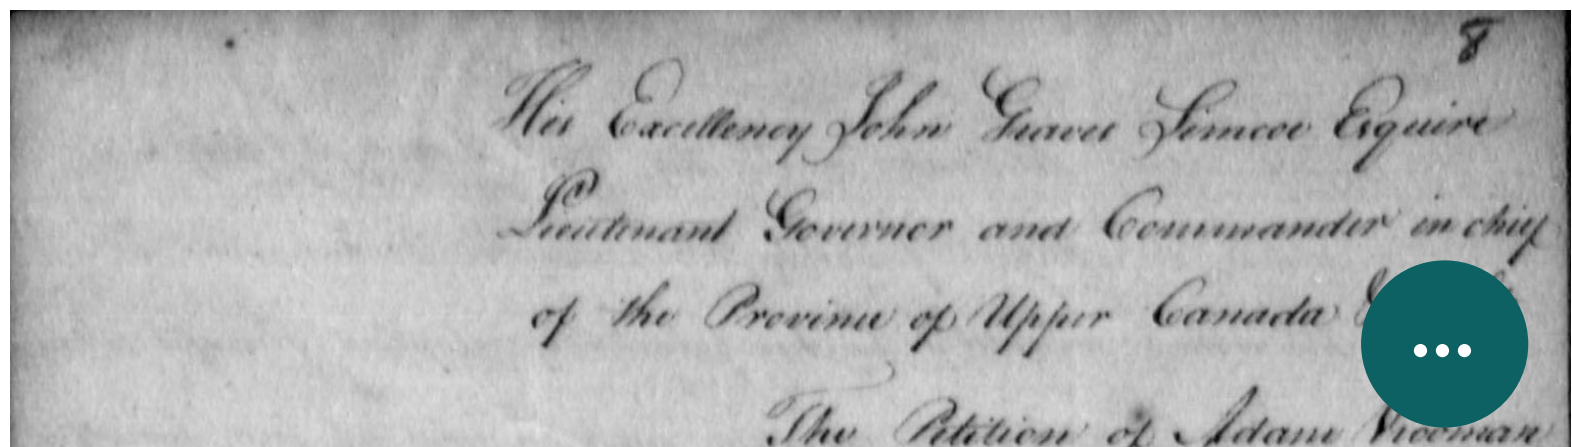 8
His Excellency John Graves Simcoe Esquire
Lieutenant Governor and Commander in chief
of the Province of Upper Canada
The Petition of Adam Vrooman